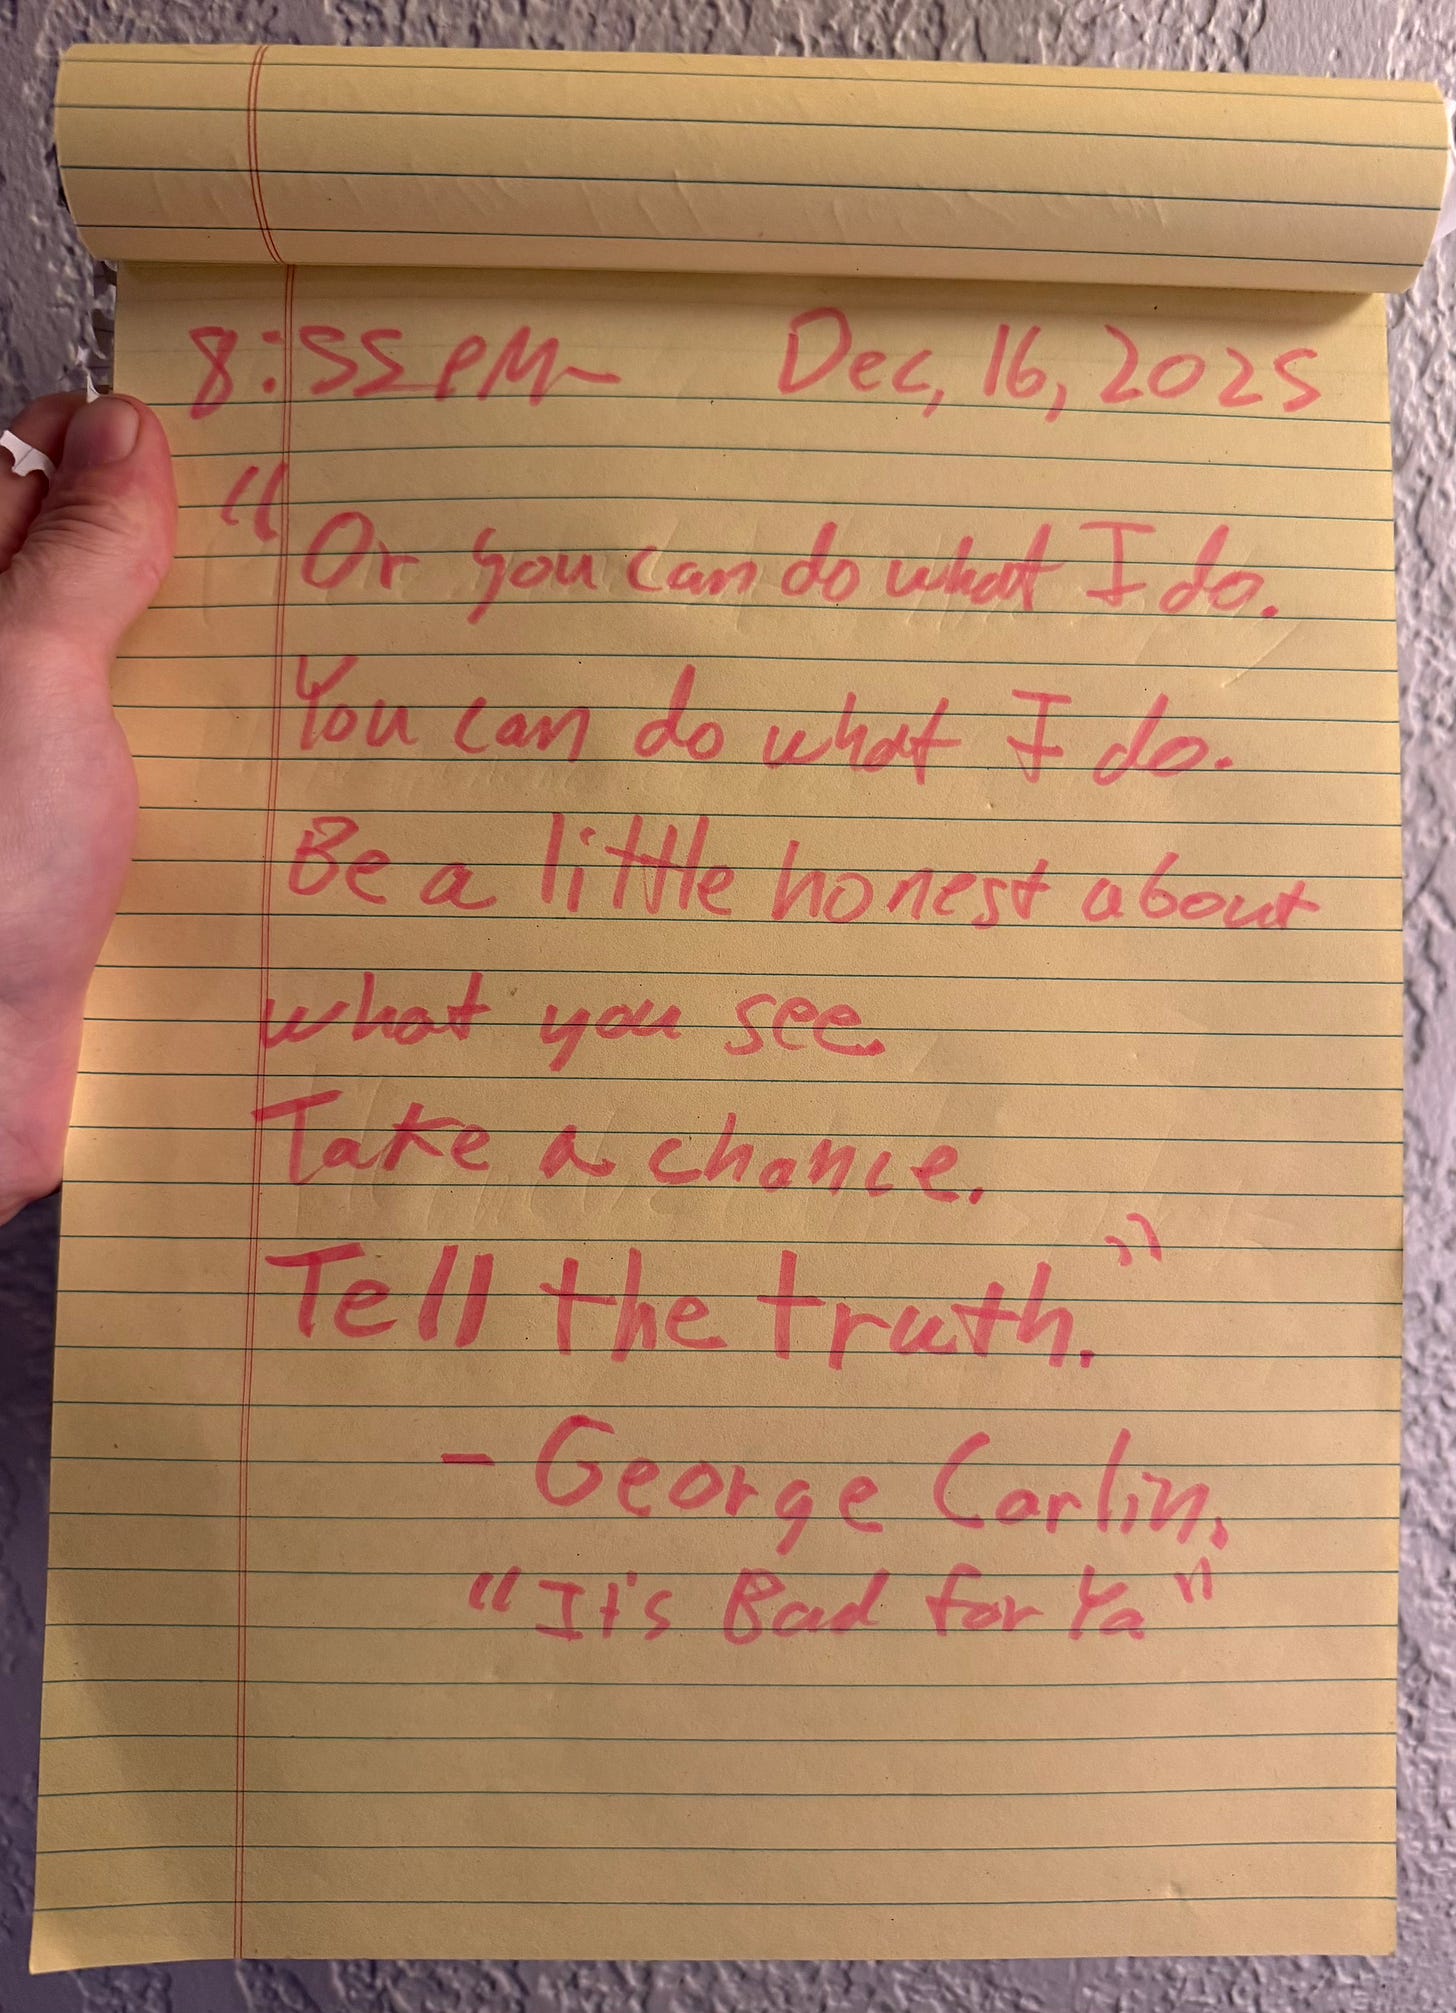 8:55 PM Dec, 16, 2025
"Or you can do what I do.
You can do what I do.
Be a little honest about
what you see.
Take a chance.
Tell the truth."
- George Carlin.
"It's Bad for Ya"